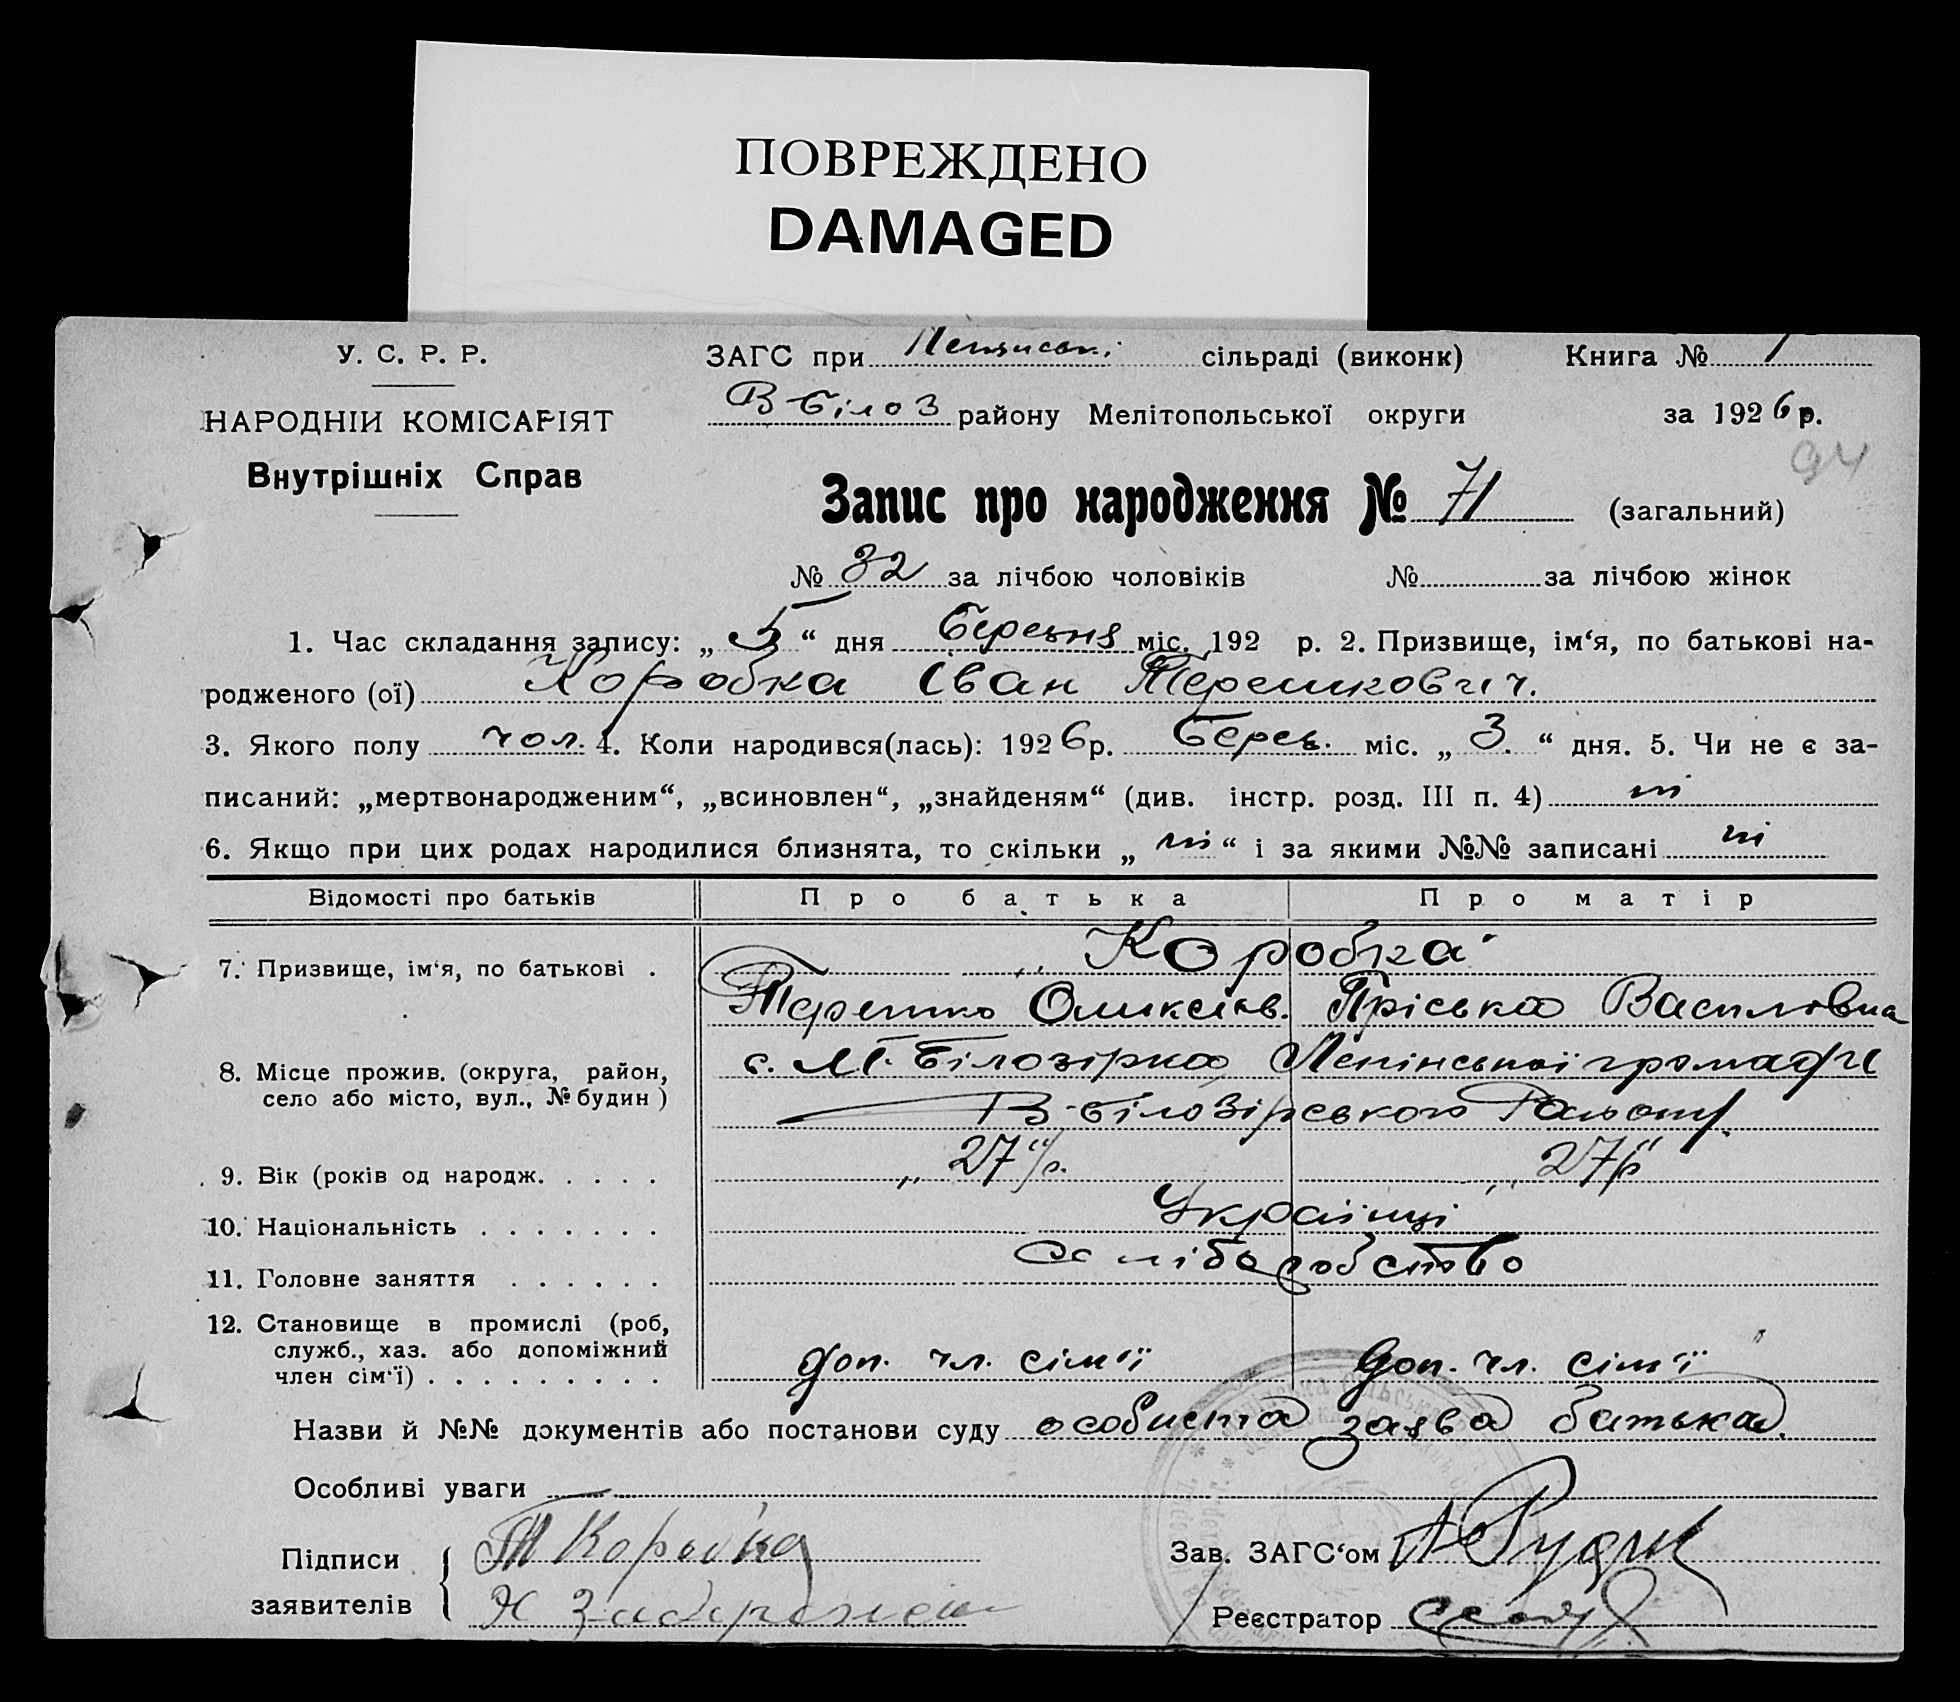 ПОВРЕЖДЕНО
DAMAGED
У. С. Р. Р.
ЗАГС при Ленінські сільраді (виконк) Книга № 1
НАРОДНІЙ КОМІСАРІЯТ
В-Білоз району Мелітопольської округи за 1926 р.
94
Внутрішніх Справ
Запис про народження № 71 (загальний)
№ 32 за лічбою чоловіків № за лічбою жінок
1. Час складання запису: „ 5 “ дня Березня міс. 192 р. 2. Призвище, ім‘я, по батькові на-
родженого (ої) Коробка Іван Терешкович.
3. Якого полу чол. 4. Коли народився(лась): 1926 р. Берез. міс. „ 3. “ дня. 5. Чи не є за-
писаний: „мертвонародженим“, „всиновлен“, „знайденям“ (див. інстр. розд. III п. 4) ні
6. Якщо при цих родах народилися близнята, то скільки „ ні “ і за якими №№ записані ні
Відомості про батьків Про батька Про матір
7. Призвище, ім‘я, по батькові . Коробка
Терешко Оликсієв. Пріська Василівна
8. Місце прожив. (округа, район, село або місто, вул., № будин ) с. М. Білозірка Ленінської громади
В-Білозірського Району.
9. Вік (років од народж. . . . . „ 27 “ р. „ 27 “ р
10. Національність . . . . . . . Українці
11. Головне заняття . . . . . . сліборобство
12. Становище в промислі (роб,
служб., хаз. або допоміжний
член сім‘ї) . . . . . . . . . доп. чл. сім'ї доп. чл. сім'ї
Назви й №№ документів або постанови суду особиста заява батька.
Особливі уваги
Підписи Т Коробка Зав. ЗАГС‘ом
заявителів Реєстратор